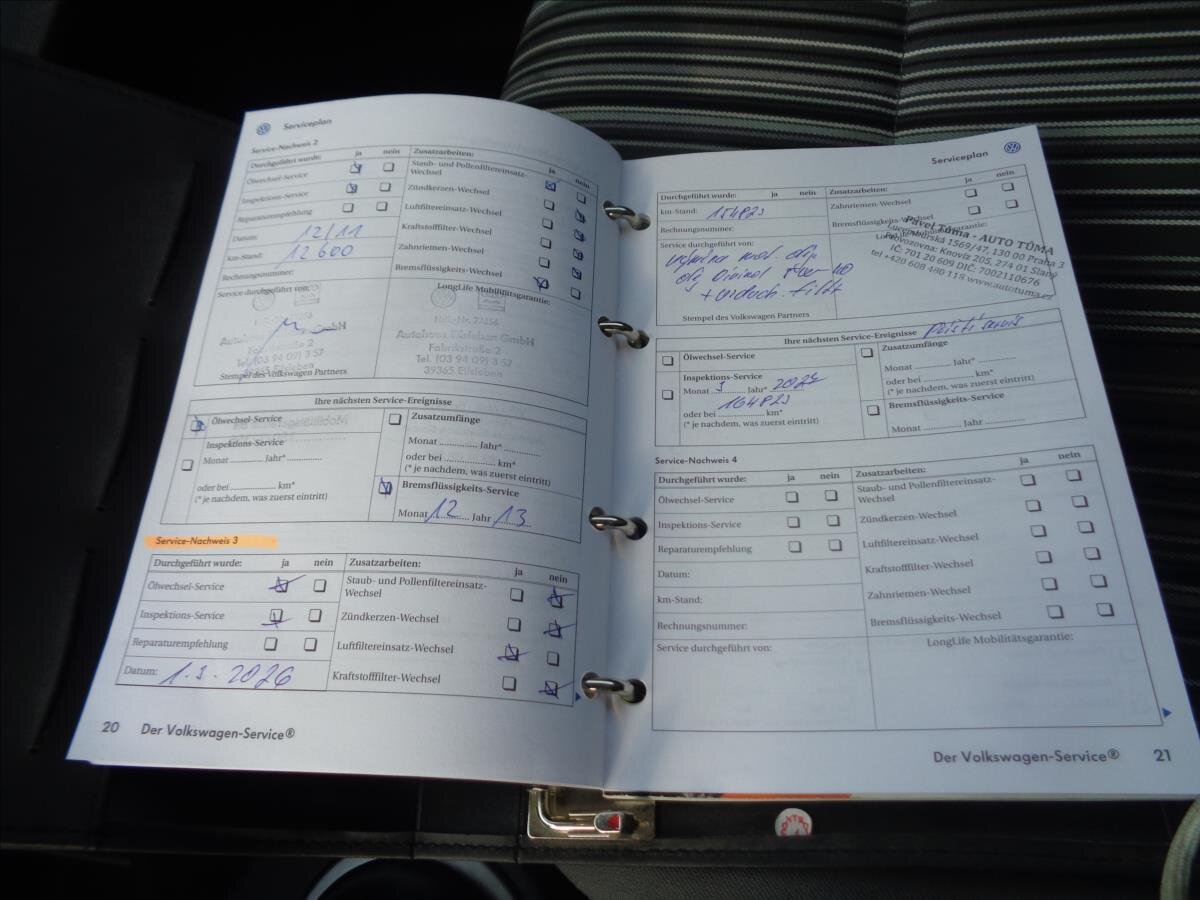 Serviceplan
Service-Nachweis 2
Durchgeführt wurde: ja nein
Ölwechsel-Service
Inspektions-Service
Reparaturempfehlung
Datum: 12/11
km-Stand: 12 600
Rechnungsnummer:
Service durchgeführt von:
Fabrikstraße 2
Tel. (03 94 09) 3 57
Stempel des Volkswagen Partners
Zusatzarbeiten: ja nein
Staub- und Pollenfiltereinsatz-
Wechsel
Zündkerzen-Wechsel
Luftfiltereinsatz-Wechsel
Kraftstofffilter-Wechsel
Zahnriemen-Wechsel
Bremsflüssigkeits-Wechsel
LongLife Mobilitätsgarantie:
Autohaus Eilsleben GmbH
Fabrikstraße 2
Tel. (03 94 09) 3 57
39365 Eilsleben
Ihre nächsten Service-Ereignisse
Ölwechsel-Service
Inspektions-Service
Monat Jahr*
oder bei km*
(* je nachdem, was zuerst eintritt)
Zusatzumfänge
Monat Jahr*
oder bei km*
(* je nachdem, was zuerst eintritt)
Bremsflüssigkeits-Service
Monat 12 Jahr 13
Service-Nachweis 3
Durchgeführt wurde: ja nein
Ölwechsel-Service
Inspektions-Service
Reparaturempfehlung
Datum: 1.3.2026
Zusatzarbeiten: ja nein
Staub- und Pollenfiltereinsatz-
Wechsel
Zündkerzen-Wechsel
Luftfiltereinsatz-Wechsel
Kraftstofffilter-Wechsel
20 Der Volkswagen-Service®
Serviceplan
Durchgeführt wurde: ja nein
km-Stand: 154823
Rechnungsnummer:
Service durchgeführt von:
Stempel des Volkswagen Partners
Zusatzarbeiten: ja nein
Zahnriemen-Wechsel
Bremsflüssigkeits-Wechsel
Pavel Tůma - AUTO TŮMA
Lucemburská 1569/47, 130 00 Praha 3
Provozovna: Knovíz 205, 274 01 Slaný
IČ: 701 20 609 DIČ: 7002110676
tel +420 608 480 118 www.autotuma.cz
Ihre nächsten Service-Ereignisse příští servis
Ölwechsel-Service
Inspektions-Service
Monat 3 Jahr* 2027
164823
oder bei km*
(* je nachdem, was zuerst eintritt)
Zusatzumfänge
Monat Jahr*
oder bei km*
(* je nachdem, was zuerst eintritt)
Bremsflüssigkeits-Service
Monat Jahr
Service-Nachweis 4
Durchgeführt wurde: ja nein
Ölwechsel-Service
Inspektions-Service
Reparaturempfehlung
Datum:
km-Stand:
Rechnungsnummer:
Service durchgeführt von:
Zusatzarbeiten: ja nein
Staub- und Pollenfiltereinsatz-
Wechsel
Zündkerzen-Wechsel
Luftfiltereinsatz-Wechsel
Kraftstofffilter-Wechsel
Zahnriemen-Wechsel
Bremsflüssigkeits-Wechsel
LongLife Mobilitätsgarantie:
Der Volkswagen-Service® 21